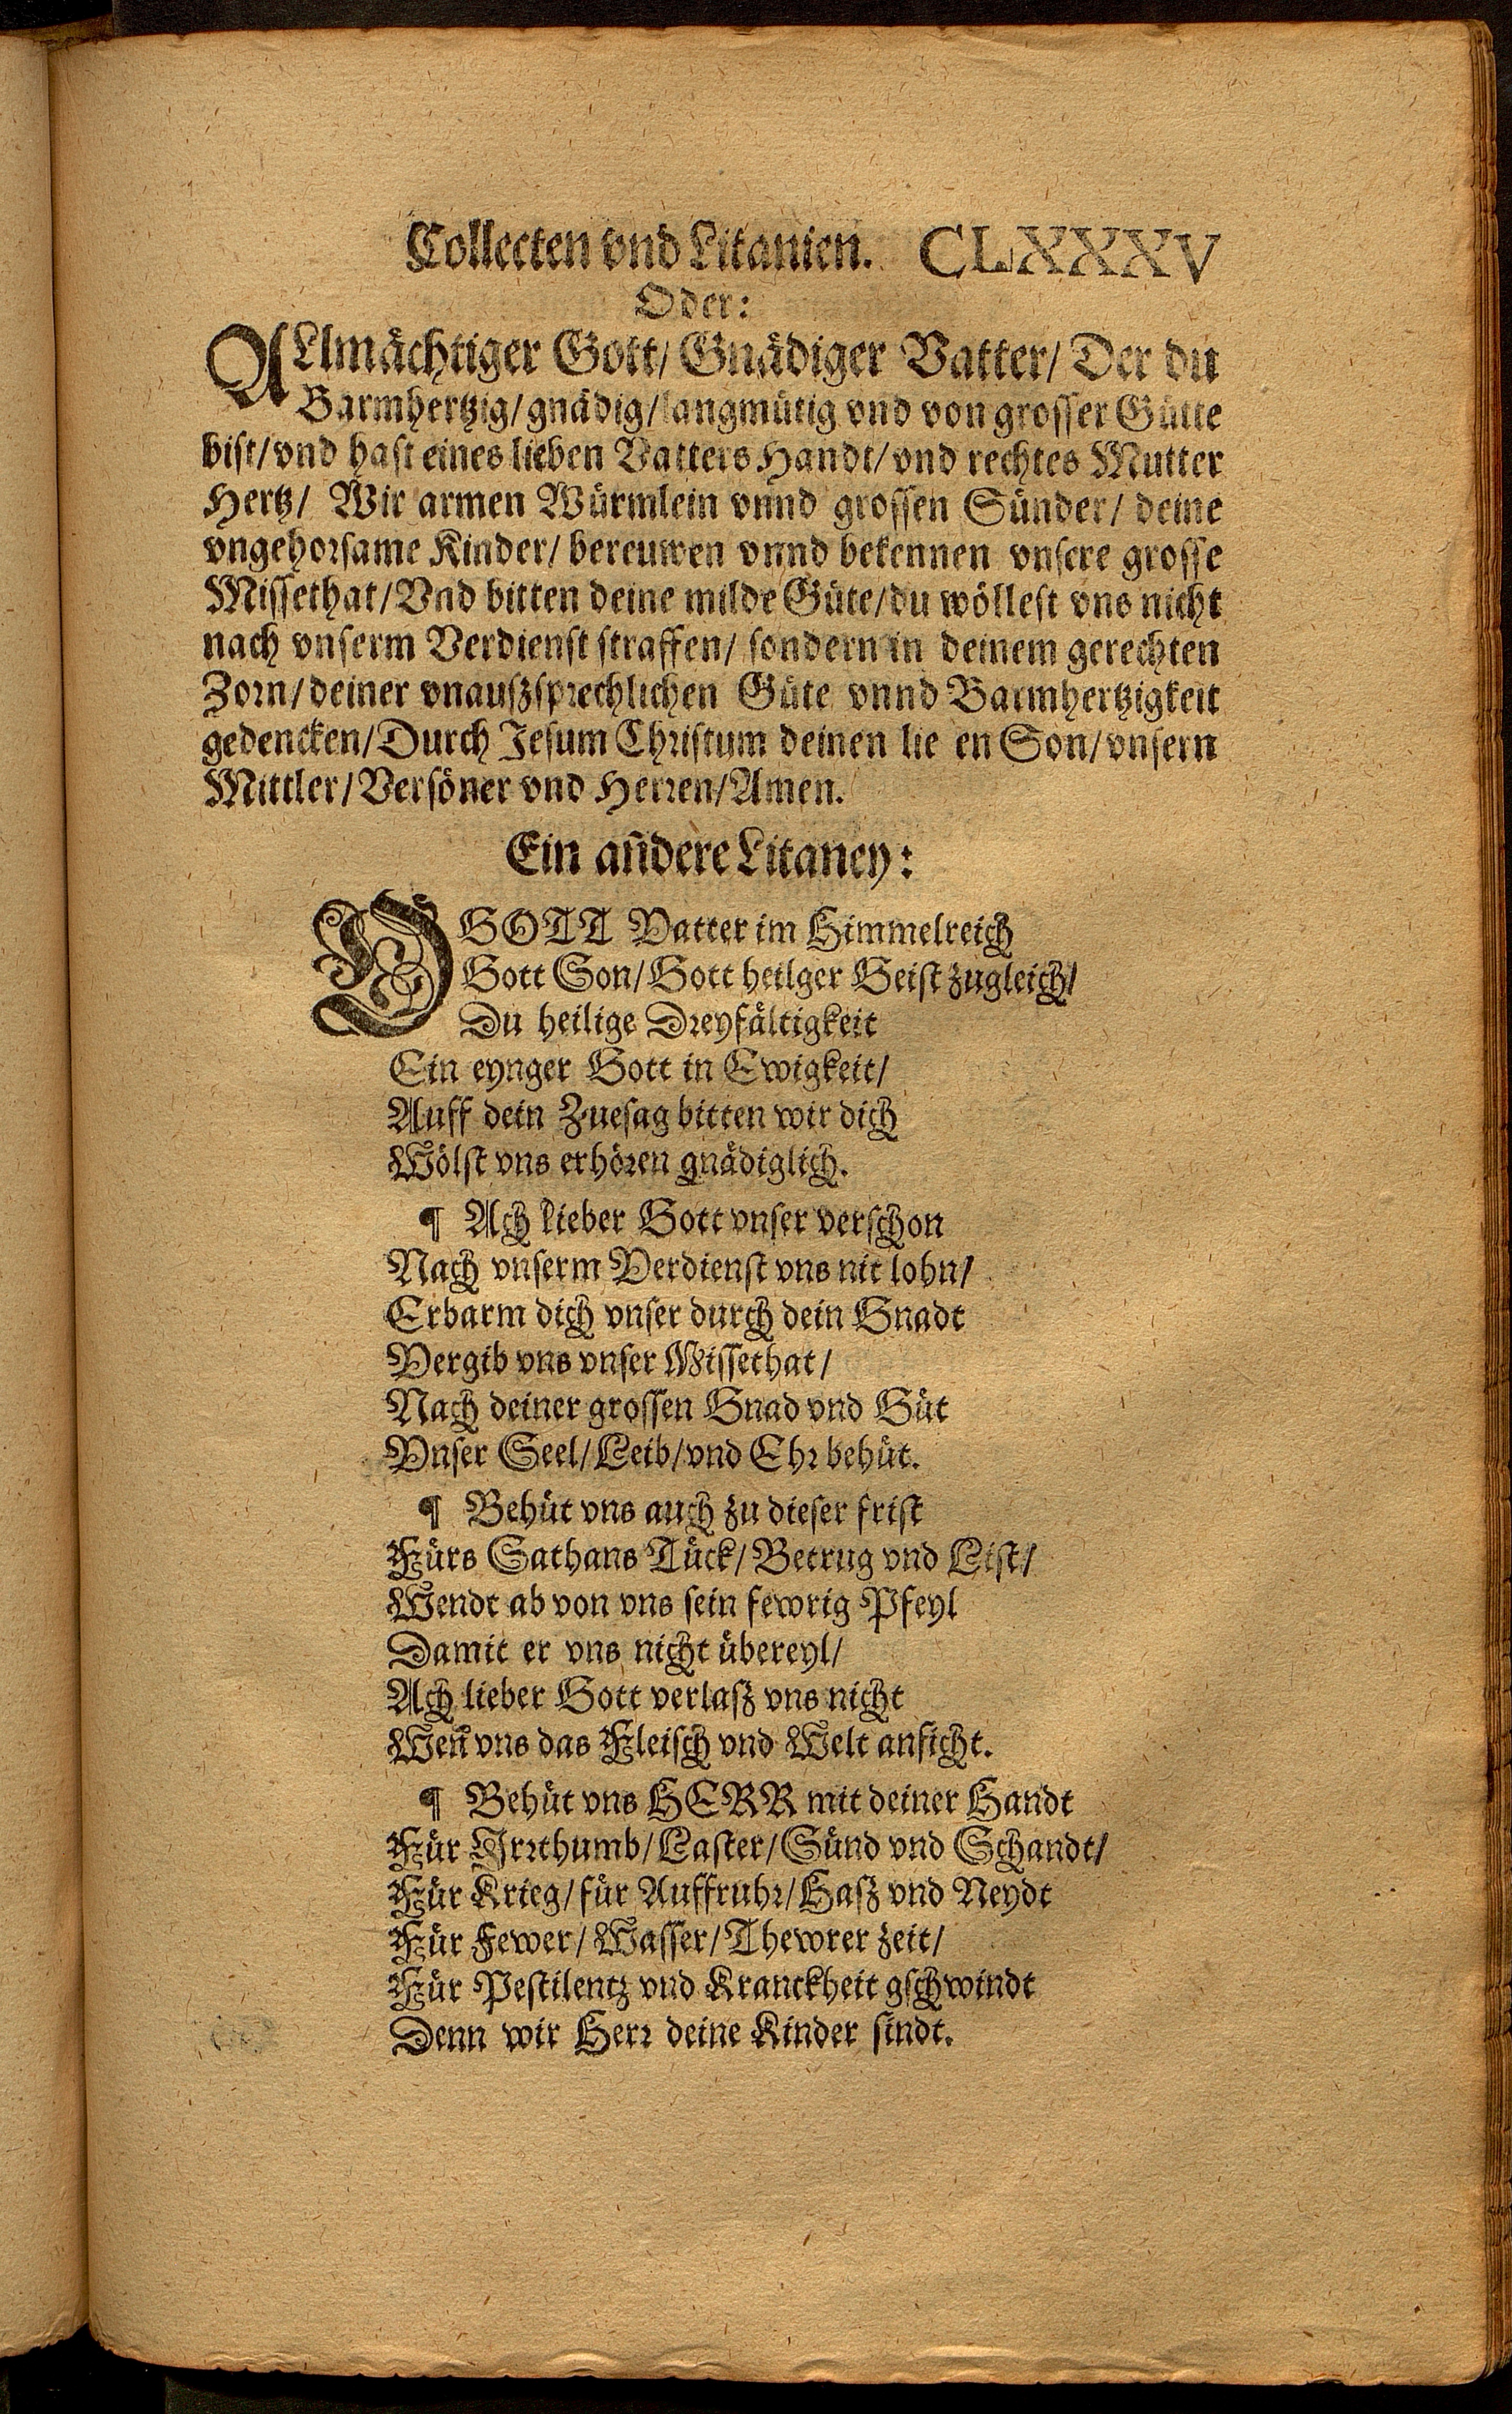 Collecten vnd Litanien. CLXXXV
Oder:
ALlmächtiger Gott/ Gnädiger Vatter/ Der du
Barmhertzig/ gnädig/ langmütig vnd von grosser Gütte
bist/ vnd hast eines lieben Vatters Handt/ vnd rechtes Mutter
Hertz/ Wir armen Würmlein vnnd grossen Sünder/ deine
vngehorsame Kinder/ bereuwen vnnd bekennen vnsere grosse
Missethat/ Vnd bitten deine milde Güte/ du wöllest vns nicht
nach vnserm Verdienst straffen/ sondern in deinem gerechten
Zorn/ deiner vnauszsprechlichen Güte vnnd Barmhertzigkeit
gedencken/ Durch Jesum Christum deinen lie en Son/ vnsern
Mittler/ Versöner vnd Herren/ Amen.
Ein añdere Litaney:
O GOTT Vatter im Himmelreich
Gott Son/ Gott heilger Geist zugleich/
Du heilige Dreyfältigkeit
Ein eynger Gott in Ewigkeit/
Auff dein Zuesag bitten wir dich
Wölst vns erhören gnädiglich.
¶ Ach lieber Gott vnser verschon
Nach vnserm Verdienst vns nit lohn/
Erbarm dich vnser durch dein Gnadt
Vergib vns vnser Missethat/
Nach deiner grossen Gnad vnd Güt
Vnser Seel/ Leib/ vnd Ehr behüt.
¶ Behüt vns auch zu dieser frist
Fürs Sathans Tück/ Betrug vnd List/
Wendt ab von vns sein fewrig Pfeyl
Damit er vns nicht übereyl/
Ach lieber Gott verlasz vns nicht
Weñ vns das Fleisch vnd Welt anficht.
¶ Behüt vns HERR mit deiner Handt
Für Irrthumb/ Laster/ Sünd vnd Schandt/
Für Krieg/ für Auffruhr/ Hasz vnd Neydt
Für Fewer/ Wasser/ Thewrer zeit/
Für Pestilentz vnd Kranckheit gschwindt
Denn wir Herr deine Kinder sindt.